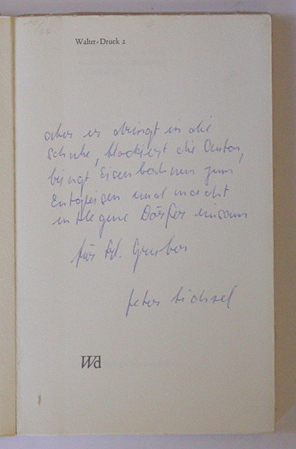 Walter-Druck 2
aber er dringt in die
Schuhe, blockiert die Autos,
bringt Eisenbahnen zum
Entgleisen und macht
entlegene Dörfer einsam
für Gruber
Peter Bichsel
Wd